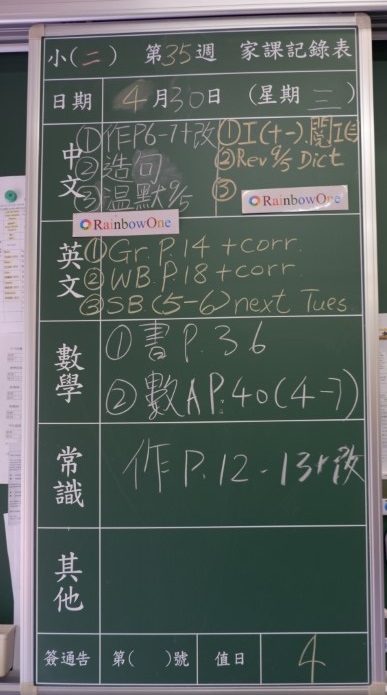 小(二) 第35週 家課記錄表
日期 4月30日 (星期三)
中文
①作P6-7+改 ①工(十一).閱工(三)
②造句 ②Rev 9/5 Dict
③溫默9/5 ③
RainbowOne
RainbowOne
英文
①Gr.P.14 +corr.
②WB.P.18 +corr.
③SB(5-6)next Tues.
數學
①書P.36
②數AP.40(4-7)
常識
作P.12-13+改
其他
簽通告 第( )號 值日 4